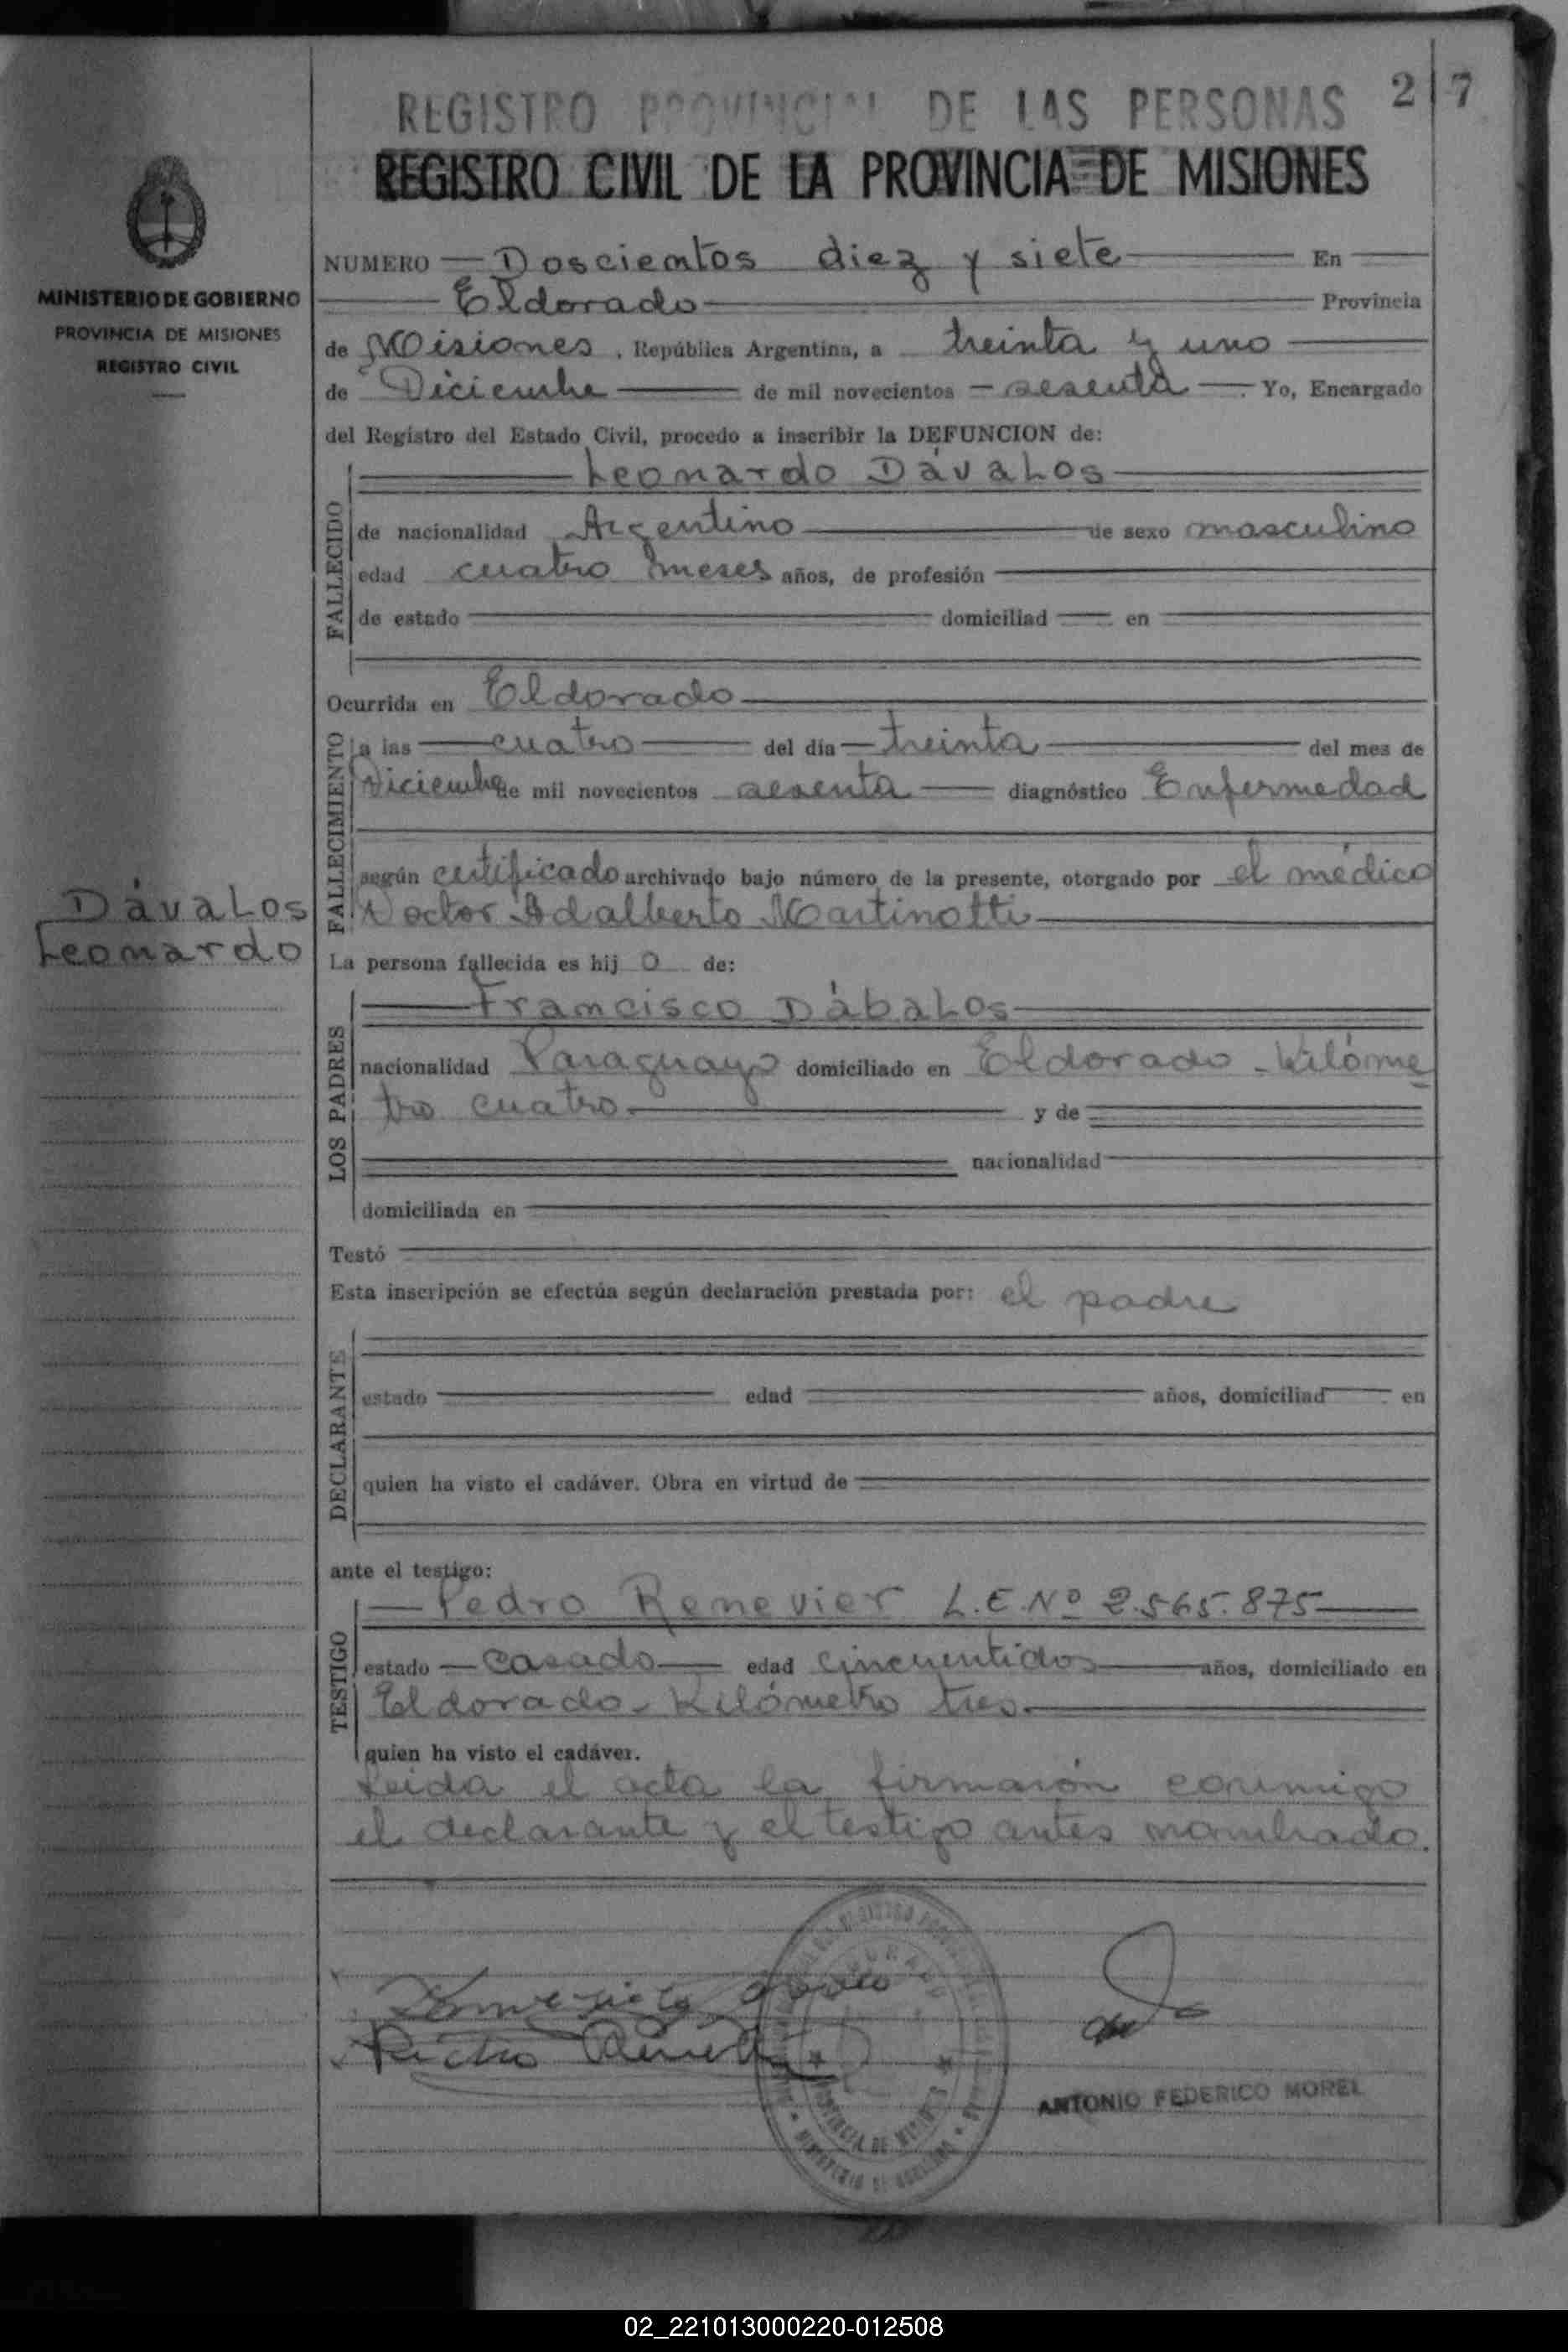 REGISTRO PROVINCIAL DE LAS PERSONAS 2 7
REGISTRO CIVIL DE LA PROVINCIA DE MISIONES
MINISTERIO DE GOBIERNO
PROVINCIA DE MISIONES
REGISTRO CIVIL
NUMERO Doscientos diez y siete En
Eldorado Provincia
de Misiones, República Argentina, a treinta y uno
de Diciembre de mil novecientos sesenta. Yo, Encargado
del Registro del Estado Civil, procedo a inscribir la DEFUNCION de:
FALLECIDO
Leonardo Dávalos
de nacionalidad Argentino de sexo masculino
edad cuatro meses años, de profesión
de estado domiciliad en
Ocurrida en Eldorado
FALLECIMIENTO
a las cuatro del día treinta del mes de
Diciembre de mil novecientos sesenta diagnóstico Enfermedad
según certificado archivado bajo número de la presente, otorgado por el médico
Doctor Adalberto Martinotti
Dávalos
Leonardo
La persona fallecida es hijo de:
LOS PADRES
Francisco Dábalos
nacionalidad Paraguayo domiciliado en Eldorado - Kilóme
tro cuatro y de
nacionalidad
domiciliada en
Testó
Esta inscripción se efectúa según declaración prestada por: el padre
DECLARANTE
estado edad años, domiciliad en
quien ha visto el cadáver. Obra en virtud de
ante el testigo:
TESTIGO
Pedro Renevier L.E.Nº 2.565.875
estado casado edad cincuentidos años, domiciliado en
Eldorado - Kilómetro tres
quien ha visto el cadáver.
Leida el acta la firmarón conmigo
el declarante y el testigo antes nombrado.
PROVINCIA DE MISIONES
MINISTERIO DE GOBIERNO
ANTONIO FEDERICO MOREL
02_221013000220-012508